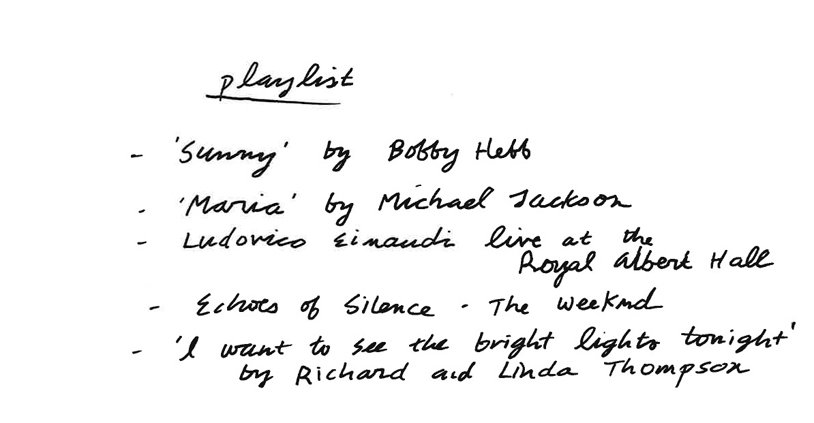 playlist
- 'Sunny' by Bobby Hebb
- 'Maria' by Michael Jackson
- Ludovico Einaudi live at the
Royal Albert Hall
- Echoes of Silence - The Weeknd
- 'I want to see the bright lights tonight'
by Richard and Linda Thompson